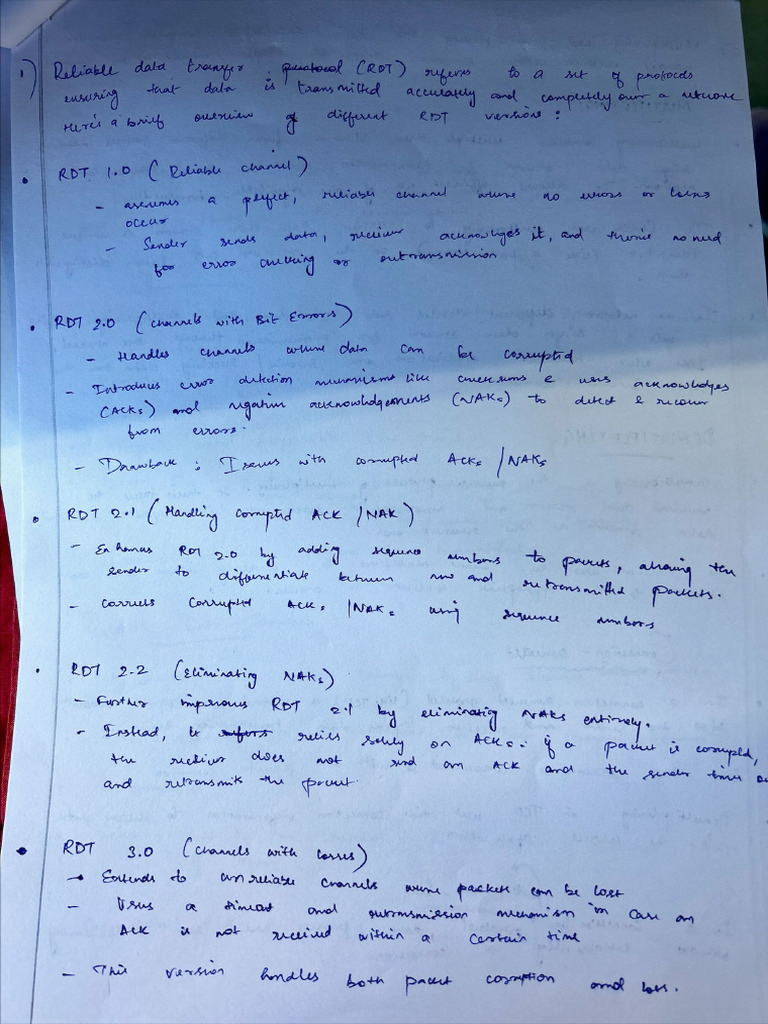 1) Reliable data transfer protocol (RDT) refers to a set of protocols
ensuring that data is transmitted accurately and completely over a network
Here's a brief overview of different RDT versions:
• RDT 1.0 (Reliable channel)
- assumes a perfect, reliable channel where no errors or losses
occur
- Sender sends data, receiver acknowledges it, and there's no need
for error checking or retransmission
• RDT 2.0 (channels with Bit Errors)
- Handles channels where data can be corrupted
- Introduces error detection mechanisms like checksums & uses acknowledges
(ACKs) and negative acknowledgements (NAKs) to detect & recover
from errors.
- Drawback: Issues with corrupted ACKs /NAKs
• RDT 2.1 (Handling corrupted ACK /NAK)
- Enhances RDT 2.0 by adding sequence numbers to packets, allowing the
sender to differentiate between new and retransmitted packets.
- corrects corrupted ACKs /NAKs using sequence numbers
• RDT 2.2 (Eliminating NAKs)
- Further improves RDT 2.1 by eliminating NAKs entirely.
- Instead, it relies solely on ACKs. if a packet is corrupted,
the receiver does not send an ACK and the sender times
and retransmits the packet.
• RDT 3.0 (channels with losses)
- Extends to unreliable channels where packets can be lost
- Uses a timeout and retransmission mechanism in case an
ACK is not received within a certain time
- This version handles both packet corruption and loss.